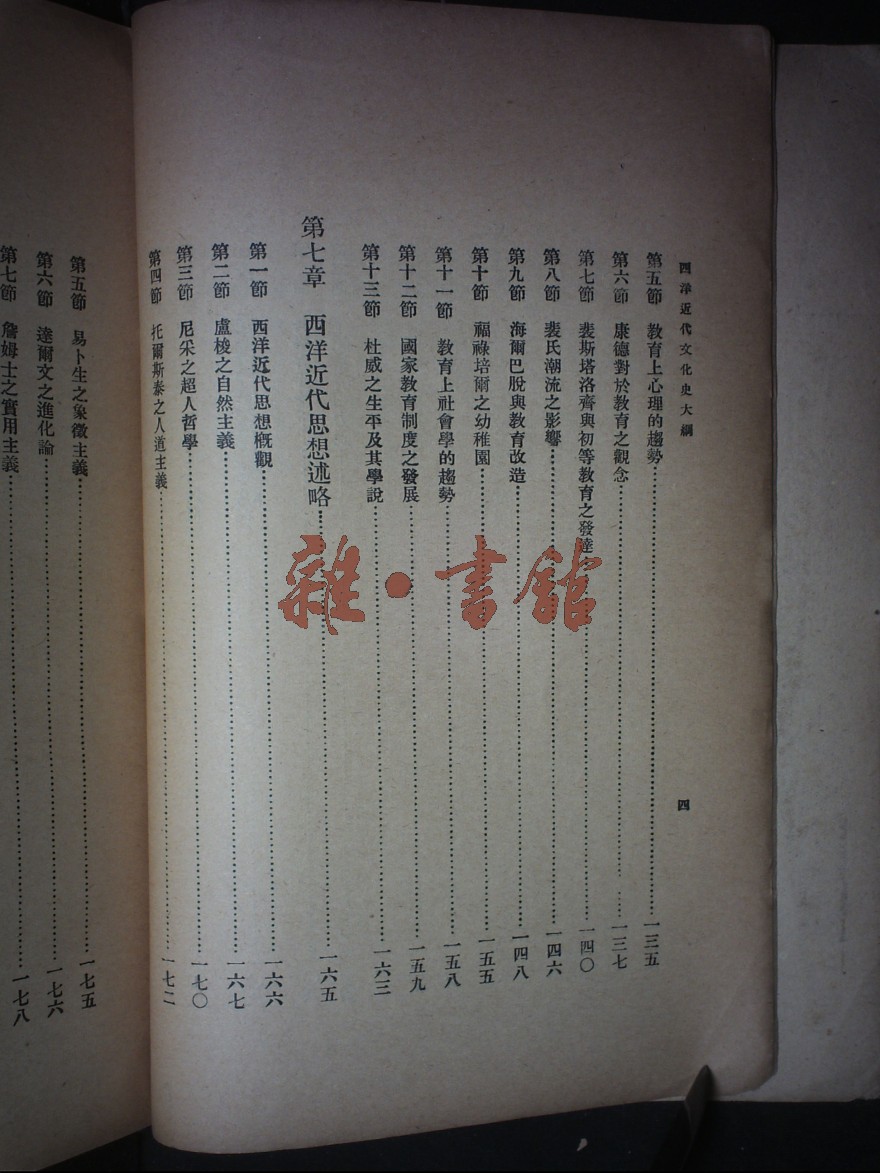 西洋近代文化史大綱
四
第五節 教育上心理的趨勢……一三五
第六節 康德對於教育之觀念……一三七
第七節 裴斯塔洛齊與初等教育之發達……一四〇
第八節 裴氏潮流之影響……一四六
第九節 海爾巴脫與教育改造……一四八
第十節 福祿培爾之幼稚園……一五五
第十一節 教育上社會學的趨勢……一五八
第十二節 國家教育制度之發展……一五九
第十三節 杜威之生平及其學說……一六三
第七章 西洋近代思想述略……一六五
第一節 西洋近代思想概觀……一六六
第二節 盧梭之自然主義……一六七
第三節 尼采之超人哲學……一七〇
第四節 托爾斯泰之人道主義……一七二
第五節 易卜生之象徵主義……一七五
第六節 達爾文之進化論……一七六
第七節 詹姆士之實用主義……一七八
雜·書館